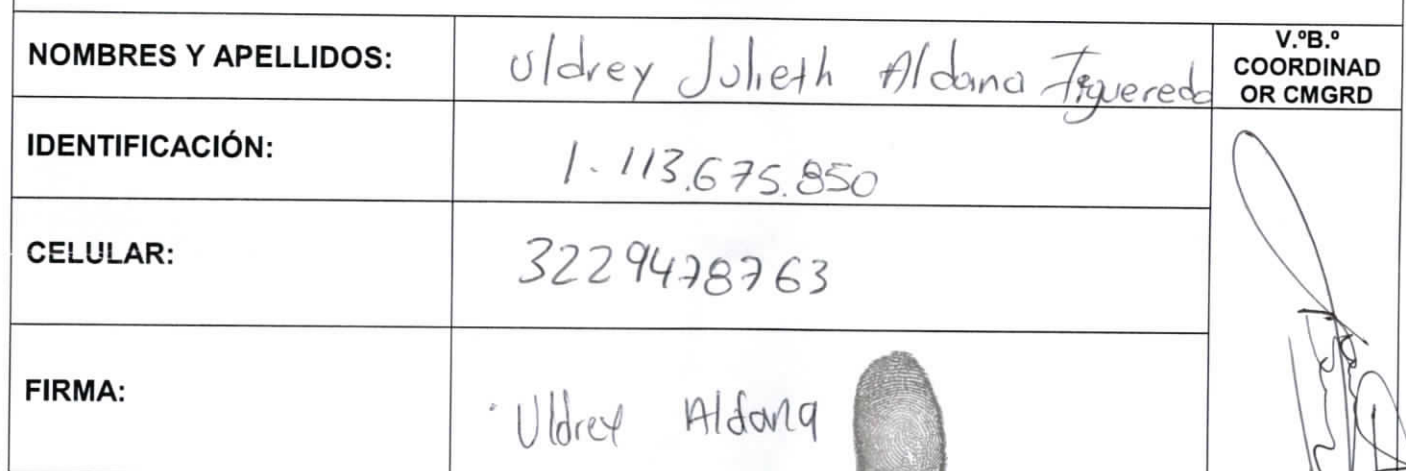 NOMBRES Y APELLIDOS: Uldrey Julieth Aldana Figueredo
V.ºB.º
COORDINAD
OR CMGRD
IDENTIFICACIÓN: 1.113.675.850
CELULAR: 3229478763
FIRMA: Uldrey Aldana